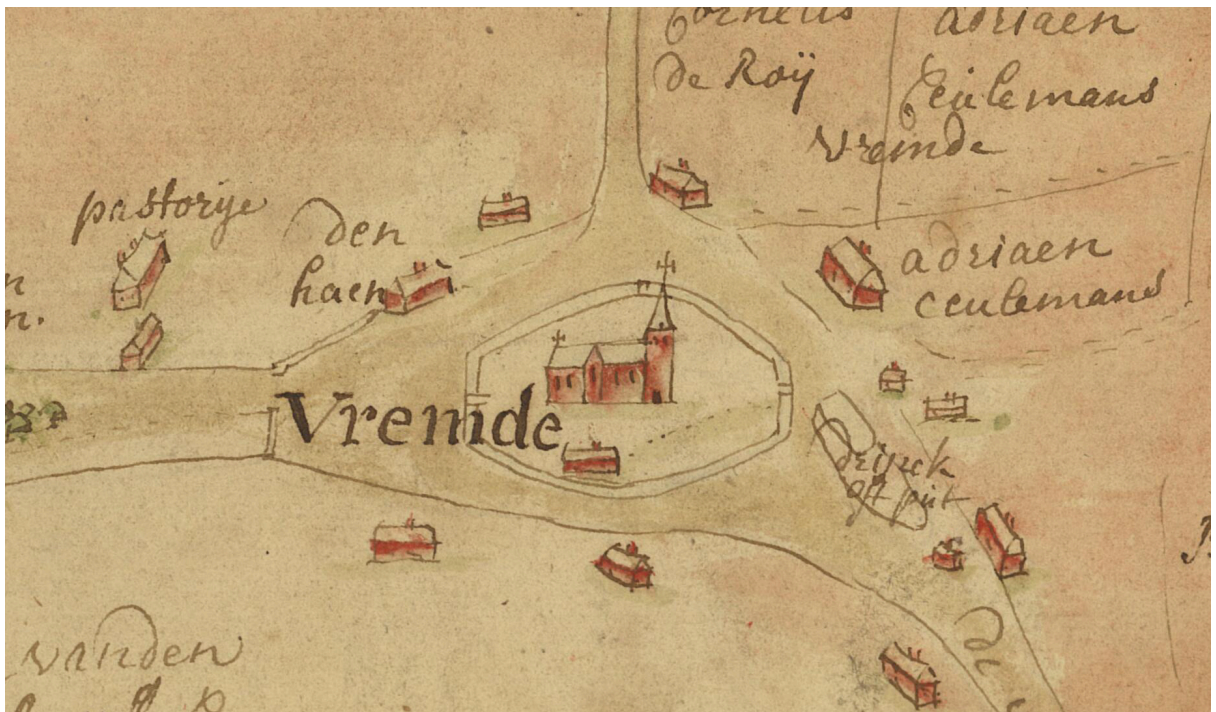 Cornelis
de Roÿ
adriaen
Ceulemans
Vremde
pastorije
den
haen
adriaen
ceulemans
n
n.
Vremde
oft put
vanden
di